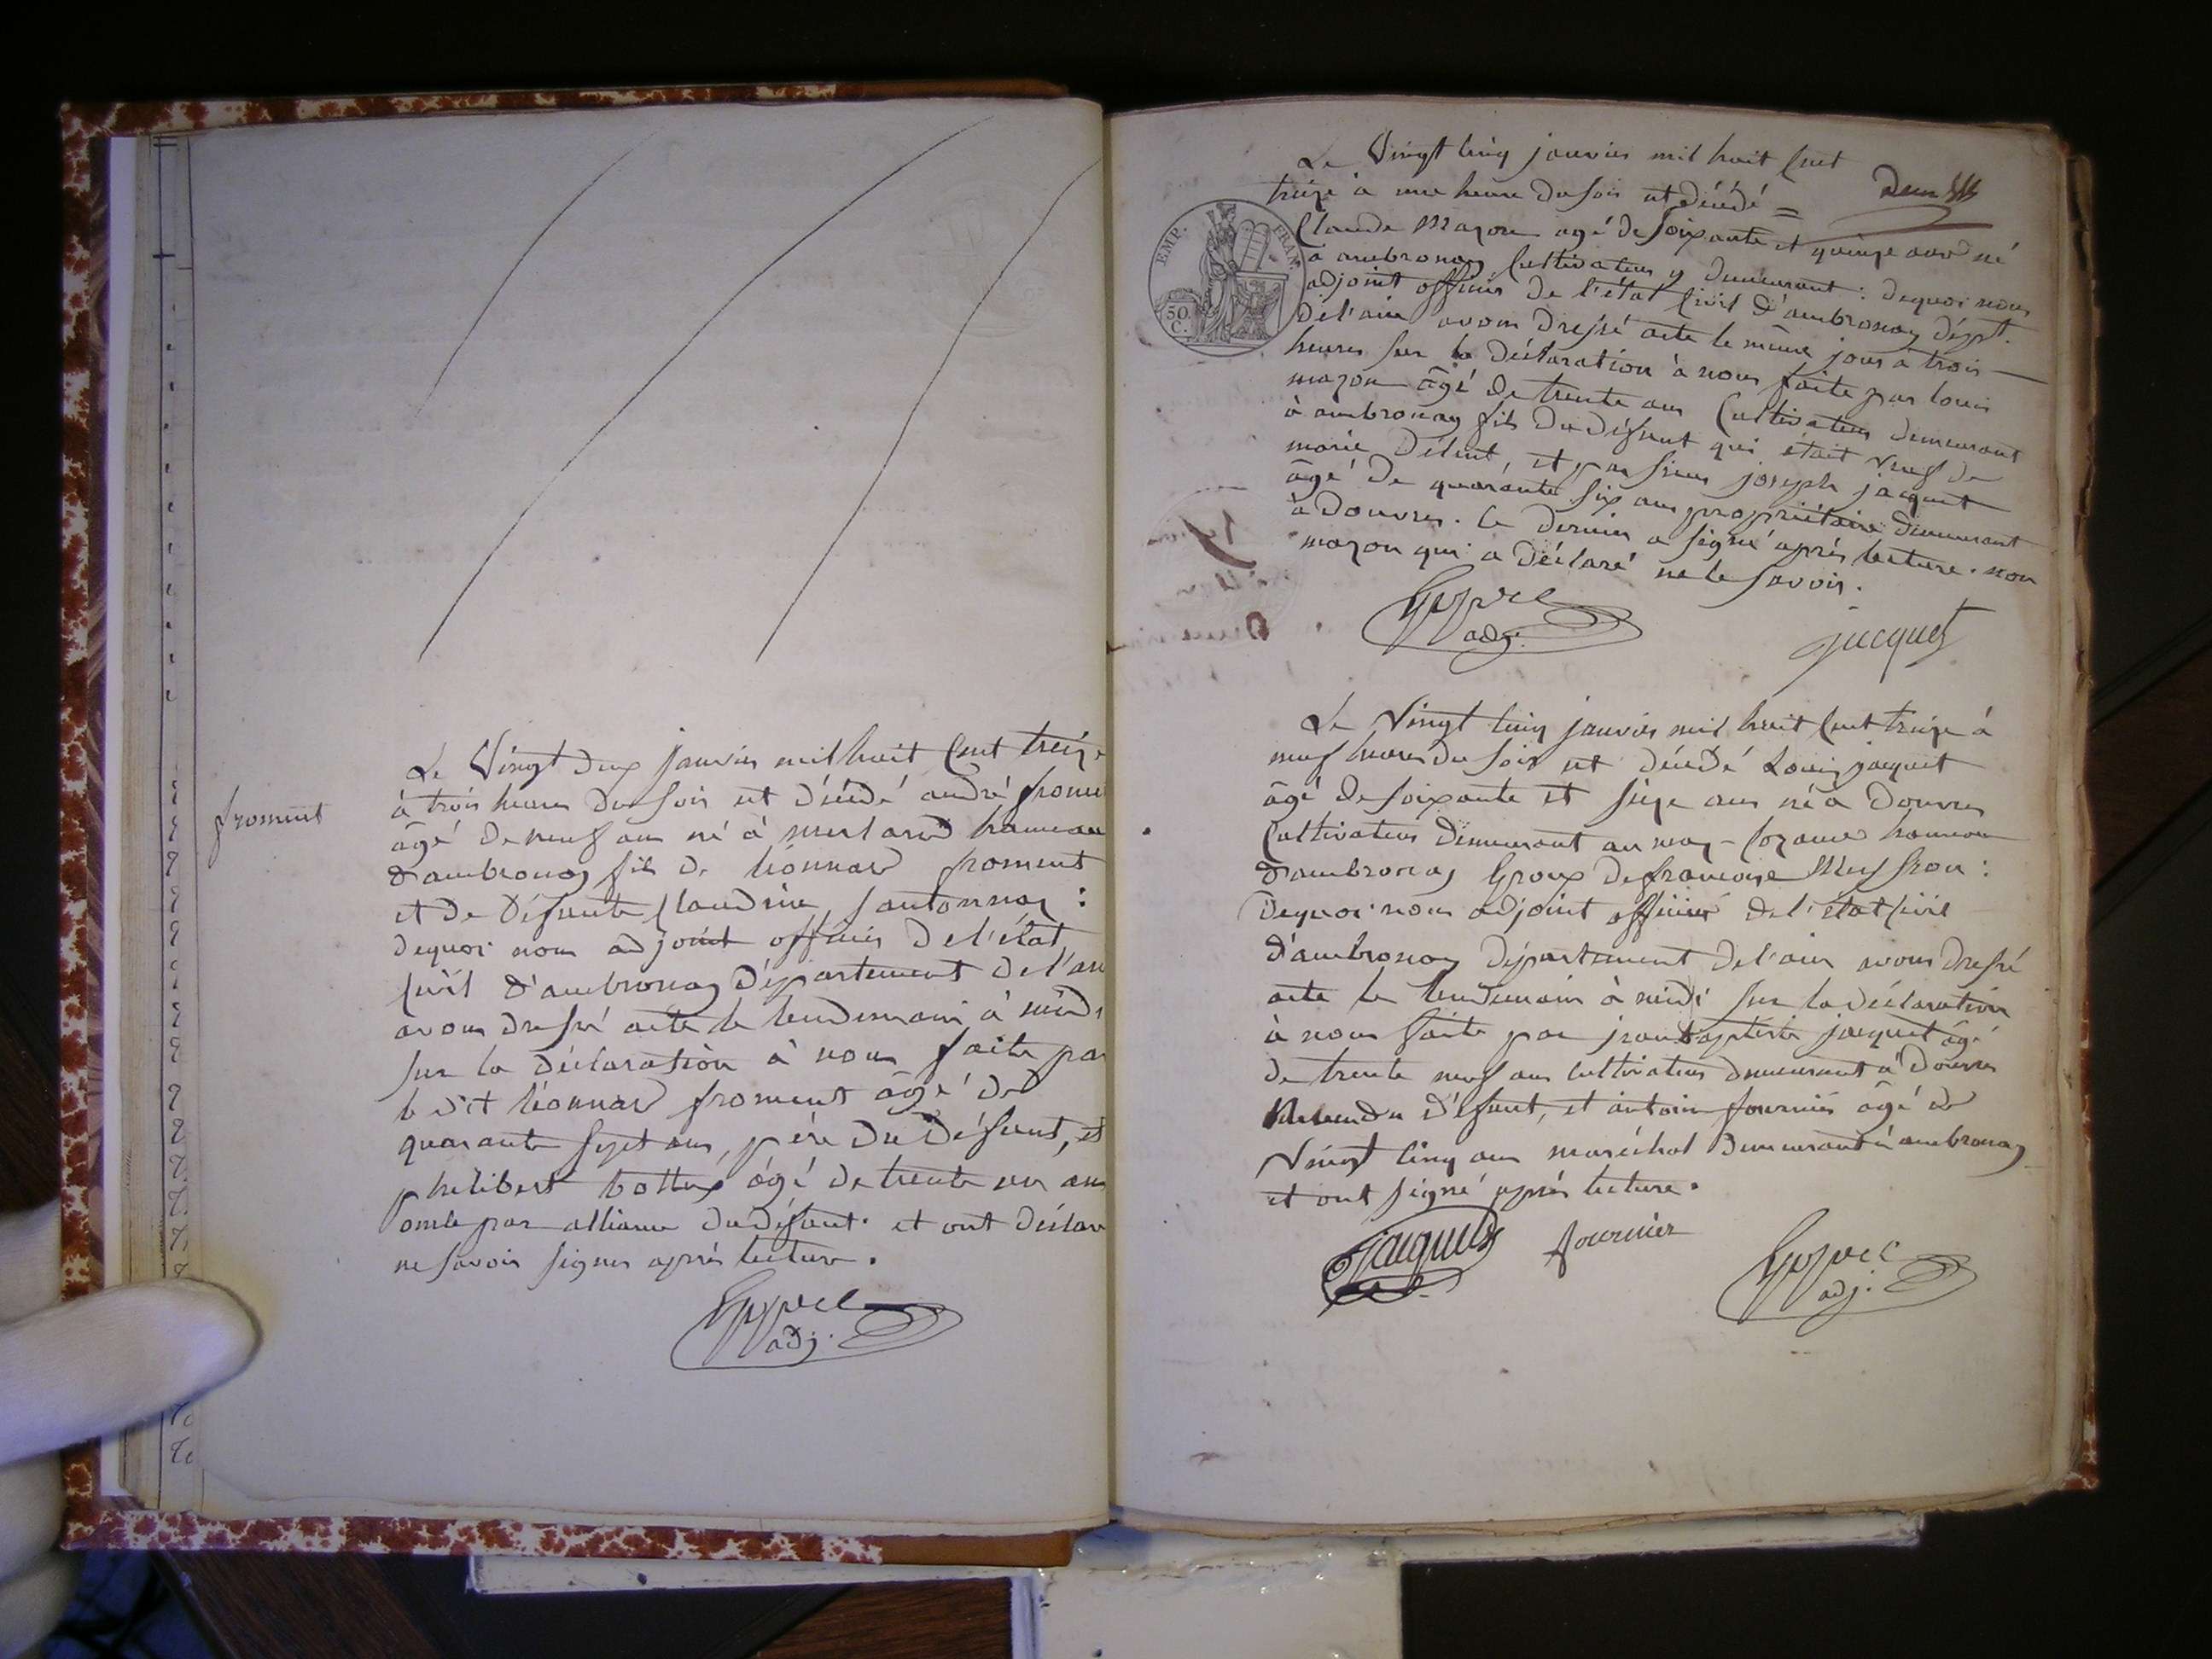 froment
Le Vingt deux janvier mil huit Cent treize
à trois heures du soir est décédé andré frome
âgé de neuf ans né à merland hameau
d'ambronay fils de léonnard froment
et de défunte Claudine santonnax :
dequoi nous adjoint officier de l'état
Civil d'ambronay Département de l'ain
avons dressé acte le lendemain à midi
sur la déclaration à nous faite par
le dit léonnard froment âgé de
quarante sept ans, père du défunt, et
philibert bottex âgé de trente un ans
oncle par alliance du défunt. et ont déclar
ne savoir signer après lecture.
adj.
EMP. FRAN.
50 C.
Le Vingt cinq janvier mil huit Cent
treize à une heure du soir est décédé =
Claude Mazon agé de soixante et quinze ans né
à ambronay Cultivateur y demeurant : dequoi nous
adjoint officier de l'état Civil d'ambronay dépt.
de l'ain avons dressé acte le même jour à trois
heures sur la déclaration à nous faite par louis
mazon âgé de trente ans Cultivateur demeurant
à ambronay fils du défunt qui était veuf de
marie et par sieur joseph jacquet
âgé de quarante six ans propriétaire demeurant
à Douvres. Ce dernier a signé après lecture. non
mazon qui a déclaré ne le savoir.
adj.
jacquet
Le Vingt cinq janvier mil huit Cent treize à
neuf heures du soir est décédé Louis jacquet
âgé de soixante et seize ans né à Douvres
Cultivateur demeurant au hameau
d'ambronay Epoux de francoise :
Dequoi nous adjoint officier de l'état Civil
d'ambronay département de l'ain avons dressé
acte le lendemain à midi sur la déclaration
à nous faite par jean baptiste jacquet âgé
de trente neuf ans cultivateur demeurant à Douvres
Neveu du défunt, et antoine fournier âgé de
Vingt cinq ans maréchal demeurant à ambronay
et ont signé après lecture.
Jacquet fournier
adj.